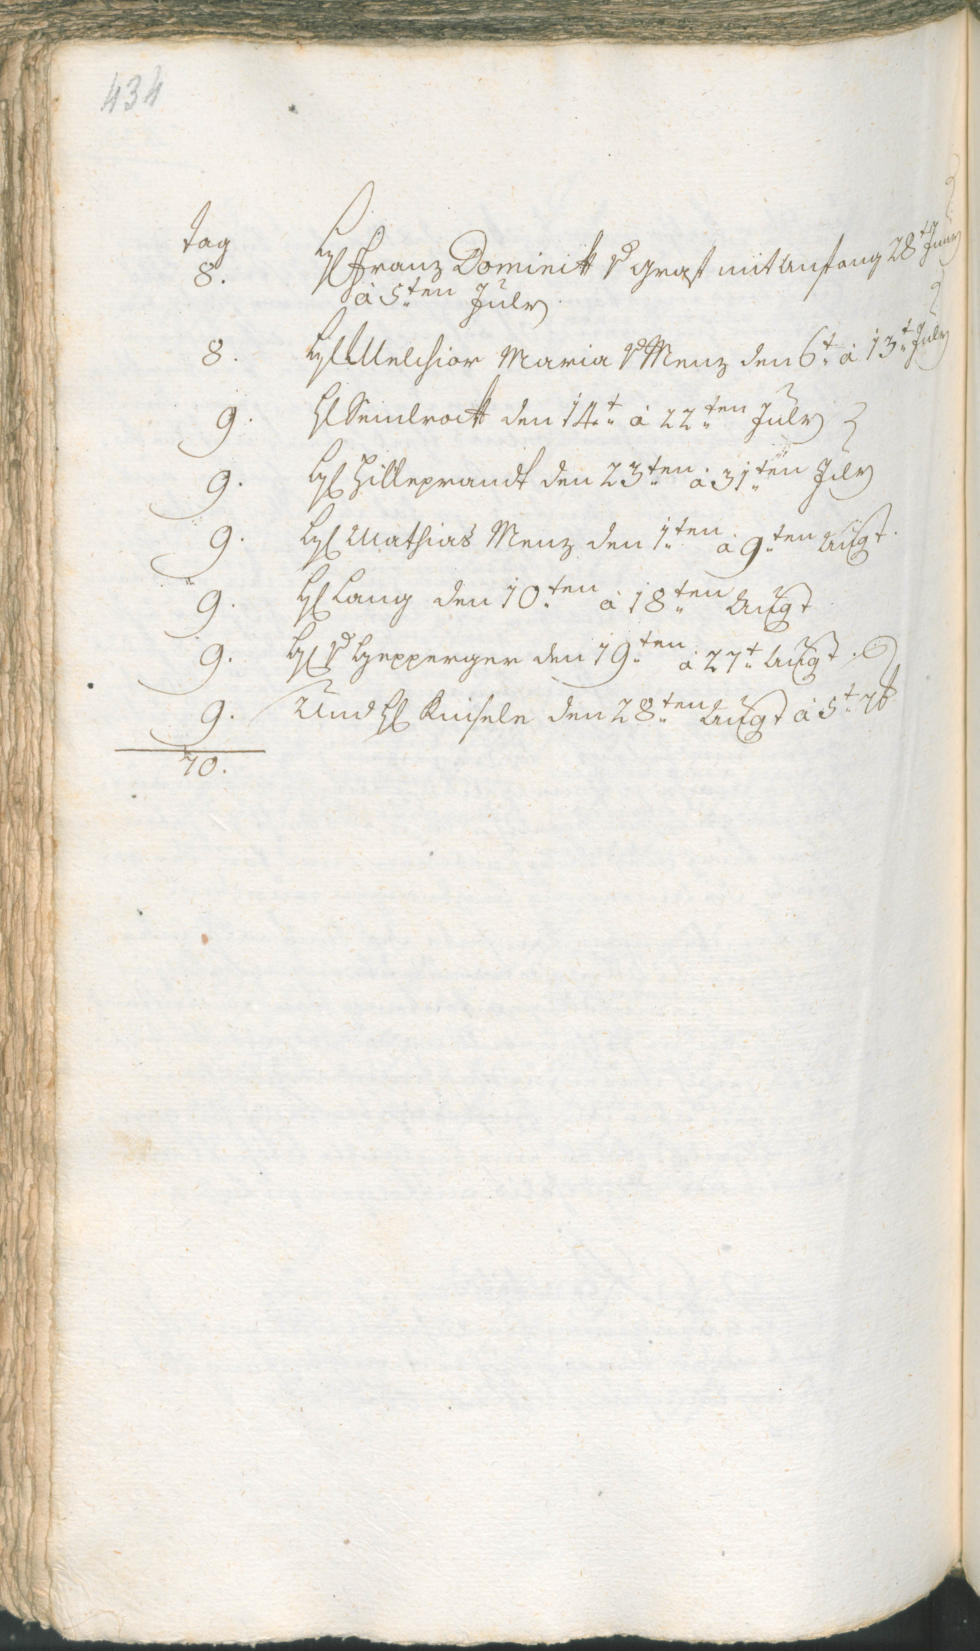 434
tag
8. H: Franz Dominikh v Graff mit Anfang 28t Juny
à 5:ten July
8. H: Melchior Maria v Menz den 6:t à 13:t July
9. H: den 14:t à 22:ten July
9. H: Hilleprandt den 23:ten à 31:ten July
9. H: Mathias Menz den 1:ten à 9:ten Augt.
9. H: Lang den 10:ten à 18:ten Augt
9. H: v Hepperger den 19:ten à 27:t Augt.
9. Und H: Knisele den 28:ten Augt à 5:t 7b
70.